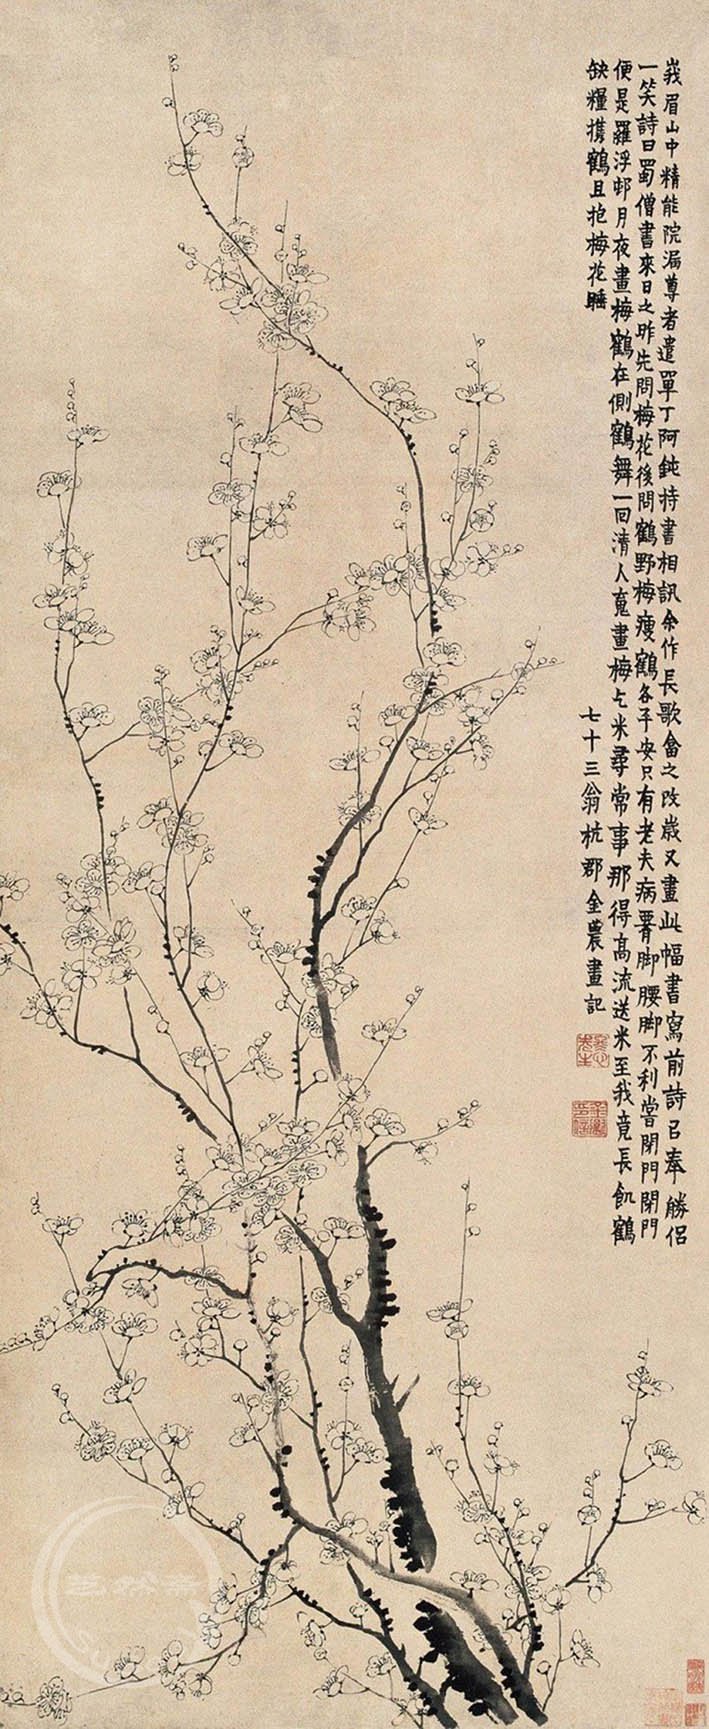 峩眉山中精能院漏尊者遣單丁阿鈍持書相訊余作長歌畣之改歲又畫此幅書寫前詩已奉勝侣
一笑詩曰蜀僧書來日之昨先問梅花後問鶴野梅瘦鶴各平安只有老夫病腰脚腰脚不利嘗閉門閉門
便是羅浮邨月夜畫梅鶴在側鶴舞一回清人䰟畫梅乞米尋常事那得高流送米至我竟長飢鶴
缺糧攜鶴且抱梅花睡
七十三翁杭郡金農畫記